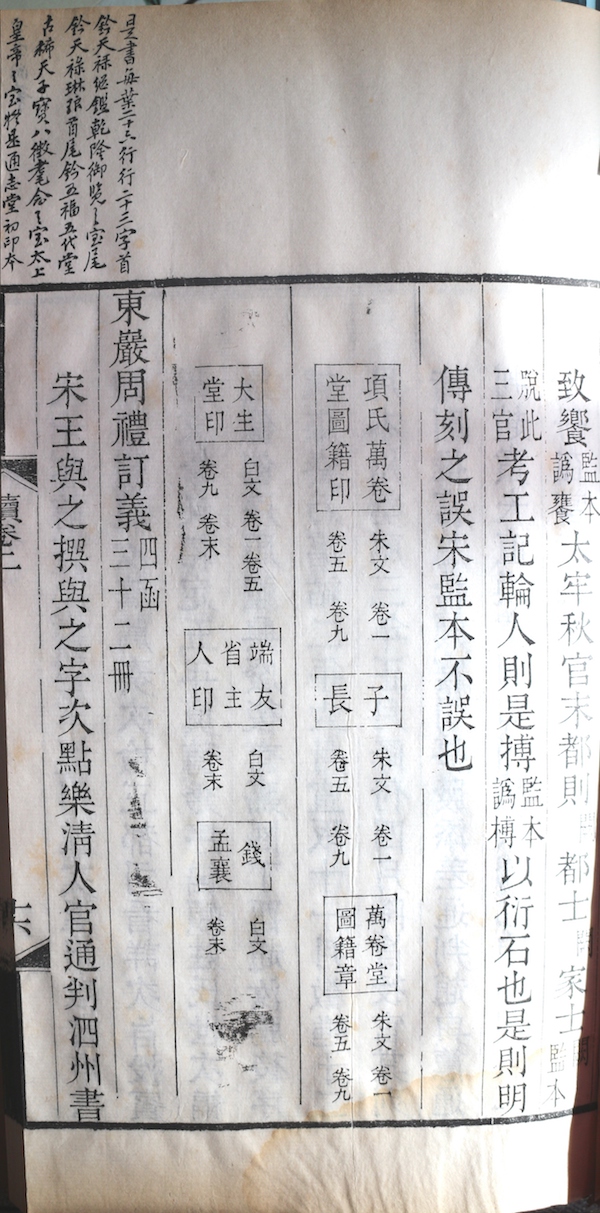 是書每葉二十六行行二十三字首
鈐天祿繼鑑乾隆御覽之宝尾
鈐天祿琳琅首尾鈐五福五代堂
古稀天子寶八徵耄念之宝太上
皇帝之宝
是通志堂初印本
致饗監本譌饔太牢秋官末都則闕都士闕家士闕監本
脫此三官考工記輪人則是摶監本譌槫以衍石也是則明
傳刻之誤宋監本不誤也
項氏萬卷堂圖籍印 朱文 卷一 卷五 卷九 子長 朱文 卷一 卷五 卷九 萬卷堂圖籍章 朱文 卷一 卷五 卷九
大生堂印 白文 卷一 卷五 卷九 卷末 端友省主人印 白文 卷末 錢孟襄 白文 卷末
東巖周禮訂義四函三十二冊
宋王與之撰與之字次點樂清人官通判泗州書
續卷二